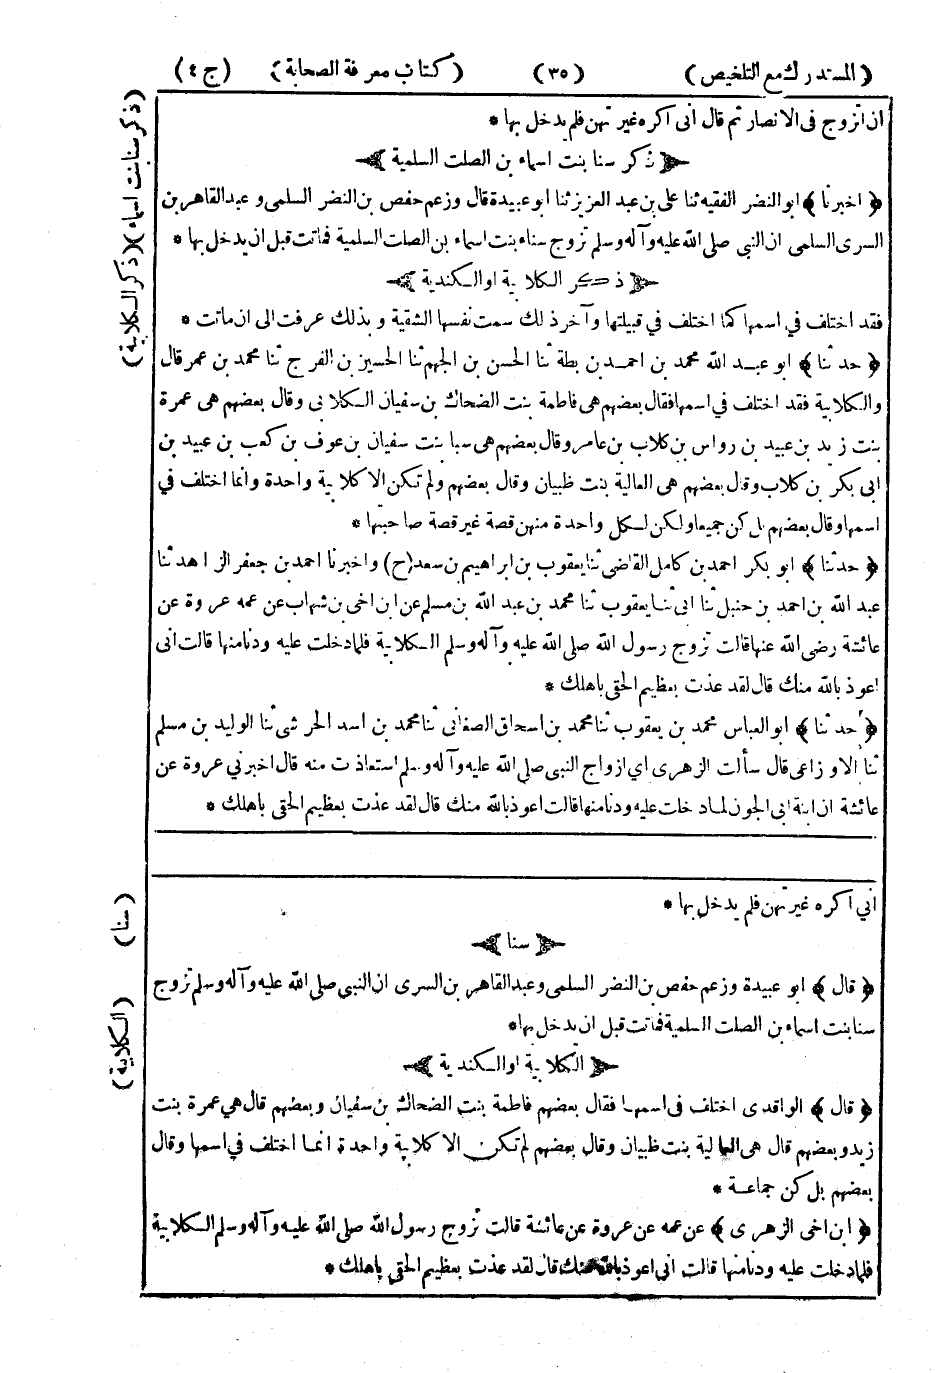 (المستدرك مع التلخيص) (٣٥) (كتاب معرفة الصحابة) (ج ٤)
ان اتزوج فى الانصار ثم قال انى اكره غيرتهن فلم يدخل بها *
ذكر سنا بنت اسماء بن الصلت السلمية
(ذكر سنا بنت اسماء) (ذكر الكلابية)
﴿ اخبرنا ﴾ ابو النضر الفقيه ثنا على بن عبد العزيز ثنا ابو عبيدة قال وزعم حفص بن النضر السلمى وعبد القاهر بن
السرى السلمى ان النبى صلى الله عليه وآله وسلم تزوج سناء بنت اسماء بن الصلت السلمية فماتت قبل ان يدخل بها *
ذكر الكلابية او الكندية
فقد اختلف في اسمها كما اختلف في قبيلتها وآخر ذلك سمت نفسها الشقية وبذلك عرفت الى ان ماتت *
﴿ حدثنا ﴾ ابو عبد الله محمد بن احمد بن بطة ثنا الحسن بن الجهم ثنا الحسين بن الفرج ثنا محمد بن عمر قال
والكلابية فقد اختلف في اسمها فقال بعضهم هى فاطمة بنت الضحاك بن سفيان الكلابى وقال بعضهم هى عمرة
بنت زيد بن عبيد بن رواس بن كلاب بن عامر وقال بعضهم هى سبا بنت سفيان بن عوف بن كعب بن عبيد بن
ابى بكر بن كلاب وقال بعضهم هى العالية بنت ظبيان وقال بعضهم ولم تكن الا كلابية واحدة وانما اختلف في
اسمها وقال بعضهم بل كن جميعا ولكن لكل واحدة منهن قصة غير قصة صاحبتها *
﴿ حدثنا ﴾ ابو بكر احمد بن كامل القاضى ثنا يعقوب بن ابراهيم بن سعد (ح) واخبرنا احمد بن جعفر الزاهد ثنا
عبد الله بن احمد بن حنبل ثنا ابى ثنا يعقوب ثنا محمد بن عبد الله بن مسلم عن ابن اخى بن شهاب عن عمه عروة عن
عائشة رضى الله عنها قالت تزوج رسول الله صلى الله عليه وآله وسلم الكلابية فلما دخلت عليه ودنا منها قالت انى
اعوذ بالله منك قال لقد عذت بعظيم الحقى باهلك *
﴿ حدثنا ﴾ ابو العباس محمد بن يعقوب ثنا محمد بن اسحاق الصغانى ثنا محمد بن اسد الحرشى ثنا الوليد بن مسلم
ثنا الاوزاعى قال سألت الزهرى اي ازواج النبى صلى الله عليه وآله وسلم استعاذت منه قال اخبرني عروة عن
عائشة ان ابنة ابى الجون لما دخلت عليه ودنا منها قالت اعوذ بالله منك قال لقد عذت بعظيم الحقى باهلك *
اني اكره غيرتهن فلم يدخل بها *
سنا
(سنا)
﴿ قال ﴾ ابو عبيدة وزعم حفص بن النضر السلمى وعبد القاهر بن السرى ان النبي صلى الله عليه وآله وسلم تزوج
سنا بنت اسماء بن الصلت السلمية فماتت قبل ان يدخل بها *
الكلابية او الكندية
(الكلابية)
﴿ قال ﴾ الواقدى اختلف فى اسمها فقال بعضهم فاطمة بنت الضحاك بن سفيان وبعضهم قال هي عمرة بنت
زيد وبعضهم قال هى العالية بنت ظبيان وقال بعضهم لم تكن الا كلابية واحدة انما اختلف في اسمها وقال
بعضهم بل كن جماعة *
﴿ ابن اخى الزهرى ﴾ عن عمه عن عروة عن عائشة قالت تزوج رسول الله صلى الله عليه وآله وسلم الكلابية
فلما دخلت عليه ودنا منها قالت انى اعوذ بالله منك قال لقد عذت بعظيم الحقى باهلك *